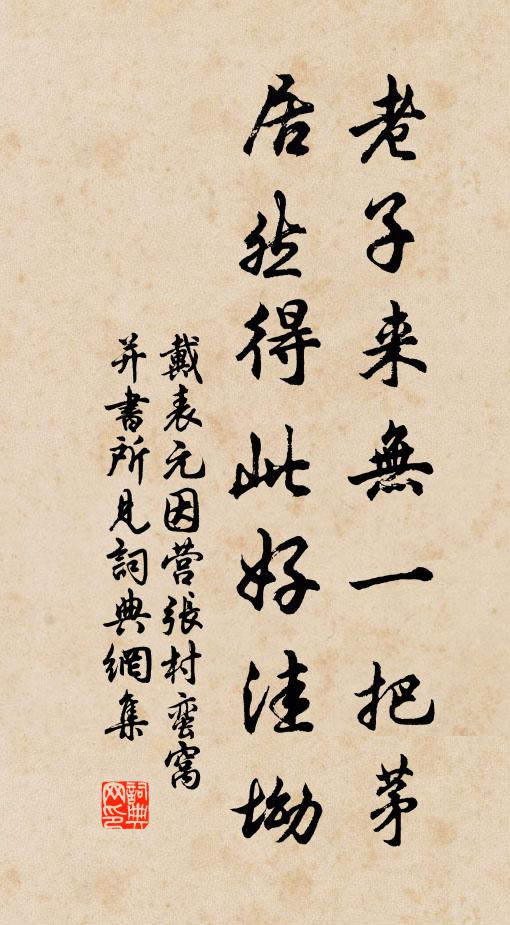 老子来無一把茅
居然得此好洼坳
戴表元因营張村蛮窩
并書所见詞典網集
詞典网印